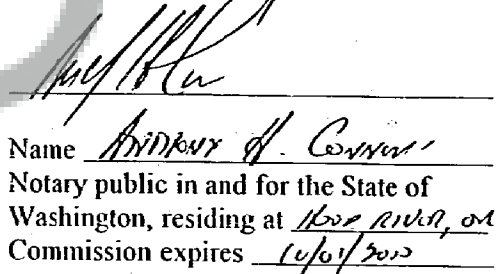 Name Anthony H. Connors
Notary public in and for the State of
Washington, residing at Hood River, OR
Commission expires